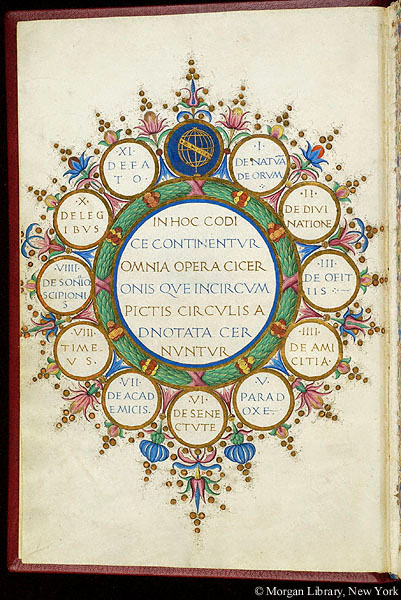 IN HOC CODI
CE CONTINENTVR
OMNIA OPERA CICER
ONIS QVE INCIRCVM
PICTIS CIRCVLIS A
DNOTATA CER
NVNTVR
·I·
DE NATVA
DEORVM·
·II·
DE DIVI
NATIONE
·III·
DE OFITIIS
·IIII·
DE AMI
CITIA·
·V·
PARAD
OXE·
·VI·
DE SENE
CTVTE·
·VII·
DE ACAD
EMICIS·
·VIII·
TIME
VS·
·VIIII·
DE SOÑIO
SCIPIONI
S
·X·
DE LEG
IBVS
·XI·
DE FA
TO·
© Morgan Library, New York